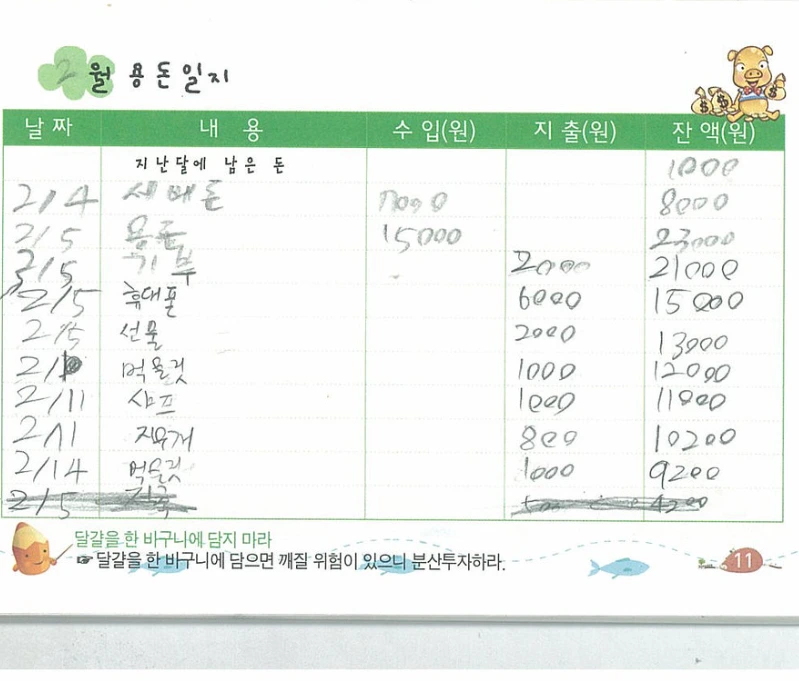 2월 용돈일지
날짜 내용 수입(원) 지출(원) 잔액(원)
지난달에 남은 돈 1000
2/4 세배돈 7000 8000
2/5 용돈 15000 23000
2/5 기부 2000 21000
2/5 휴대폰 6000 15000
2/5 선물 2000 13000
먹을것 1000 12000
2/11 샤프 1000 11000
2/11 지우개 800 10200
2/14 먹을것 1000 9200
2/5 4200
달걀을 한 바구니에 담지 마라
☞ 달걀을 한 바구니에 담으면 깨질 위험이 있으니 분산투자하라.
11